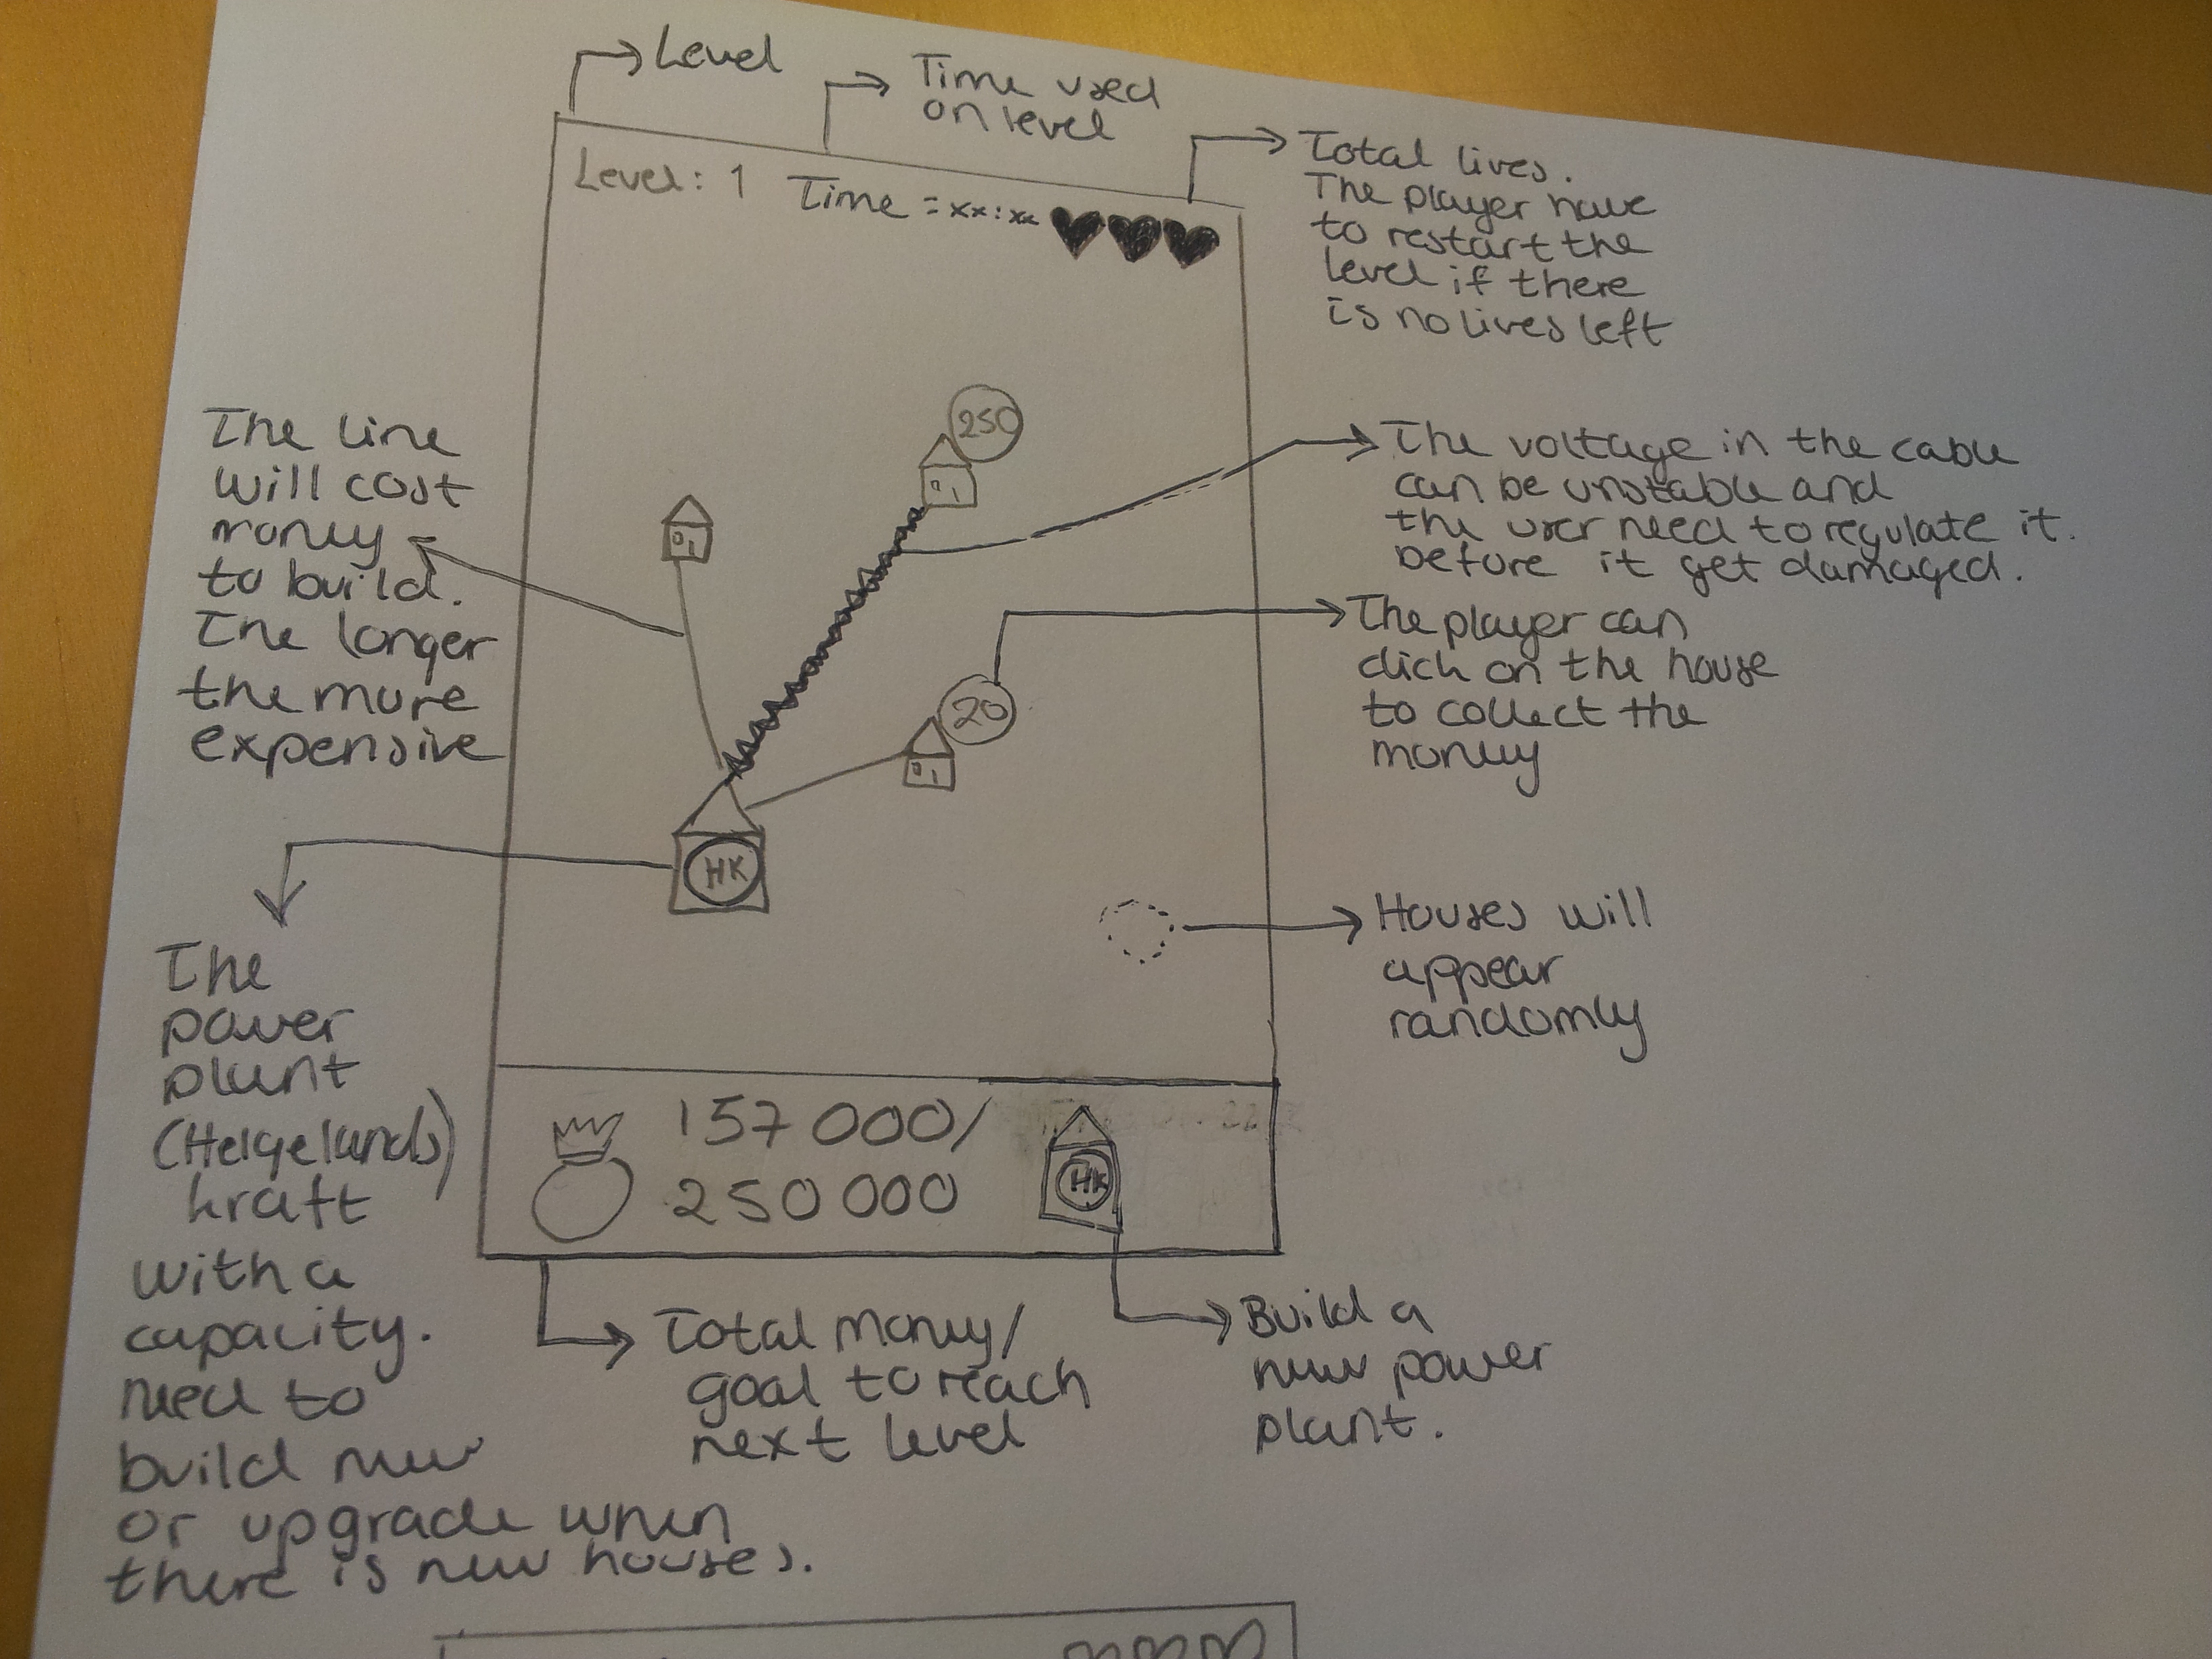 Level
Time used
on level
Total lives.
The player have
to restart the
level if there
is no lives left
Level: 1 Time = xx:xx
The line
will cost
money
to build.
The longer
the more
expensive
250
The voltage in the cable
can be unstable and
the user need to regulate it
before it get damaged.
20
The player can
click on the house
to collect the
money
HK
Houses will
appear
randomly
The
power
plant
(Helgelands)
kraft
with a
capacity.
need to
build new
or upgrade when
there is new houses.
157 000/
250 000
HK
Total money/
goal to reach
next level
Build a
new power
plant.